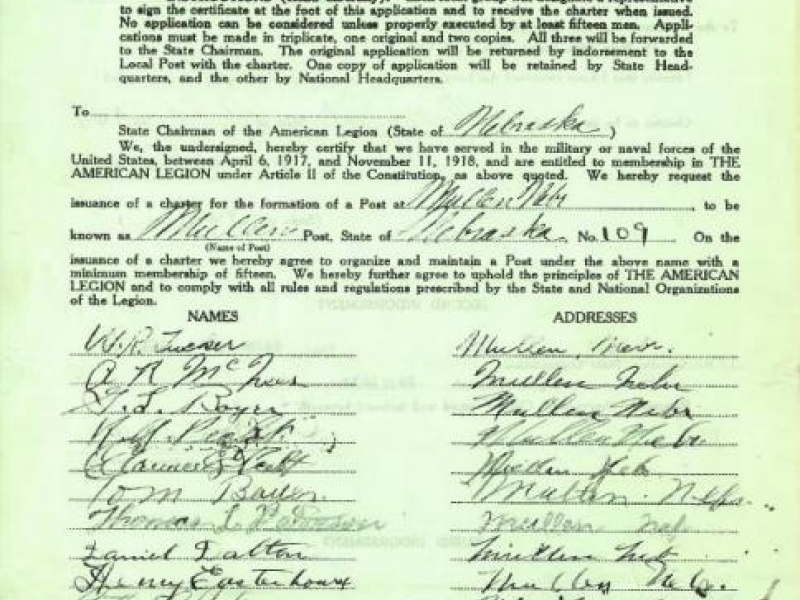 to sign certificate at the foot of this application and to receive the charter when issued.
No application can be considered unless properly executed by at least fifteen men. Appli-
cations must be made in triplicate, one original and two copies. All three will be forwarded
to the State Chairman. The original application will be returned by indorsement to the
Local Post with the charter. One copy of application will be retained by State Head-
quarters, and the other by National Headquarters.
To
State Chairman of the American Legion (State of Nebraska)
We, the undersigned, hereby certify that we have served in the military or naval forces of the
United States, between April 6, 1917, and November 11, 1918, and are entitled to membership in THE
AMERICAN LEGION under Article II of the Constitution, as above quoted. We hereby request the
issuance of a charter for the formation of a Post at Mullen Nebr to be
known as Mullen Post, State of Nebraska. No. 109. On the
(Name of Post)
issuance of a charter we hereby agree to organize and maintain a Post under the above name with a
minimum membership of fifteen. We hereby further agree to uphold the principles of THE AMERICAN
LEGION and to comply with all rules and regulations prescribed by the State and National Organizations
of the Legion.
NAMES ADDRESSES
W. R. Tucker Mullen, Nebr.
A R Mullen Nebr
Boyer Mullen Nebr
Mullen Nebr.
Neb
Tom Mullen. Nebr.
Thomas L Mullen Neb
Daniel Dalton Mullen Neb
Henry Easterhouse Mullen Nebr.